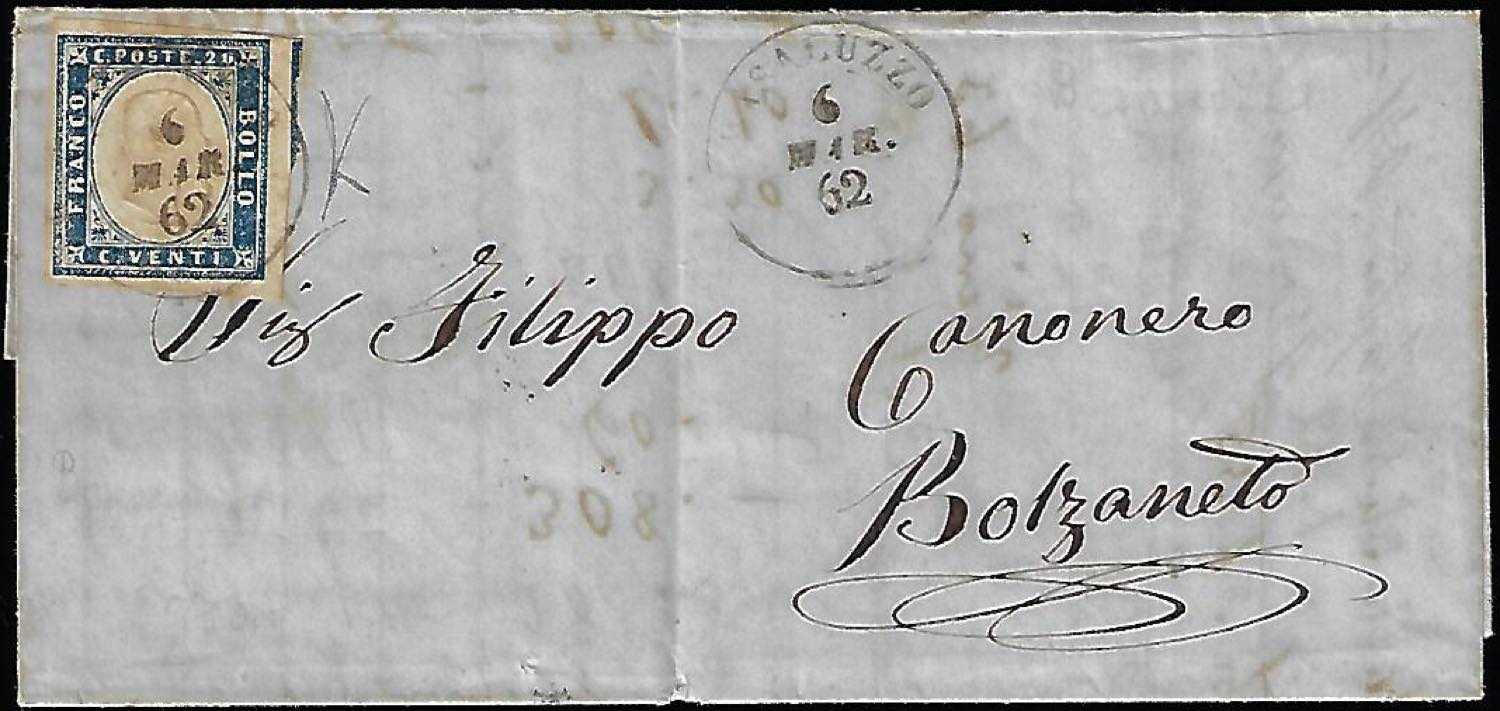 C. POSTE. 20
FRANCO
BOLLO
C. VENTI
6
MAR
62
SALUZZO
6
MAR.
62
K
Sig Filippo Canonero
Bolzaneto
308